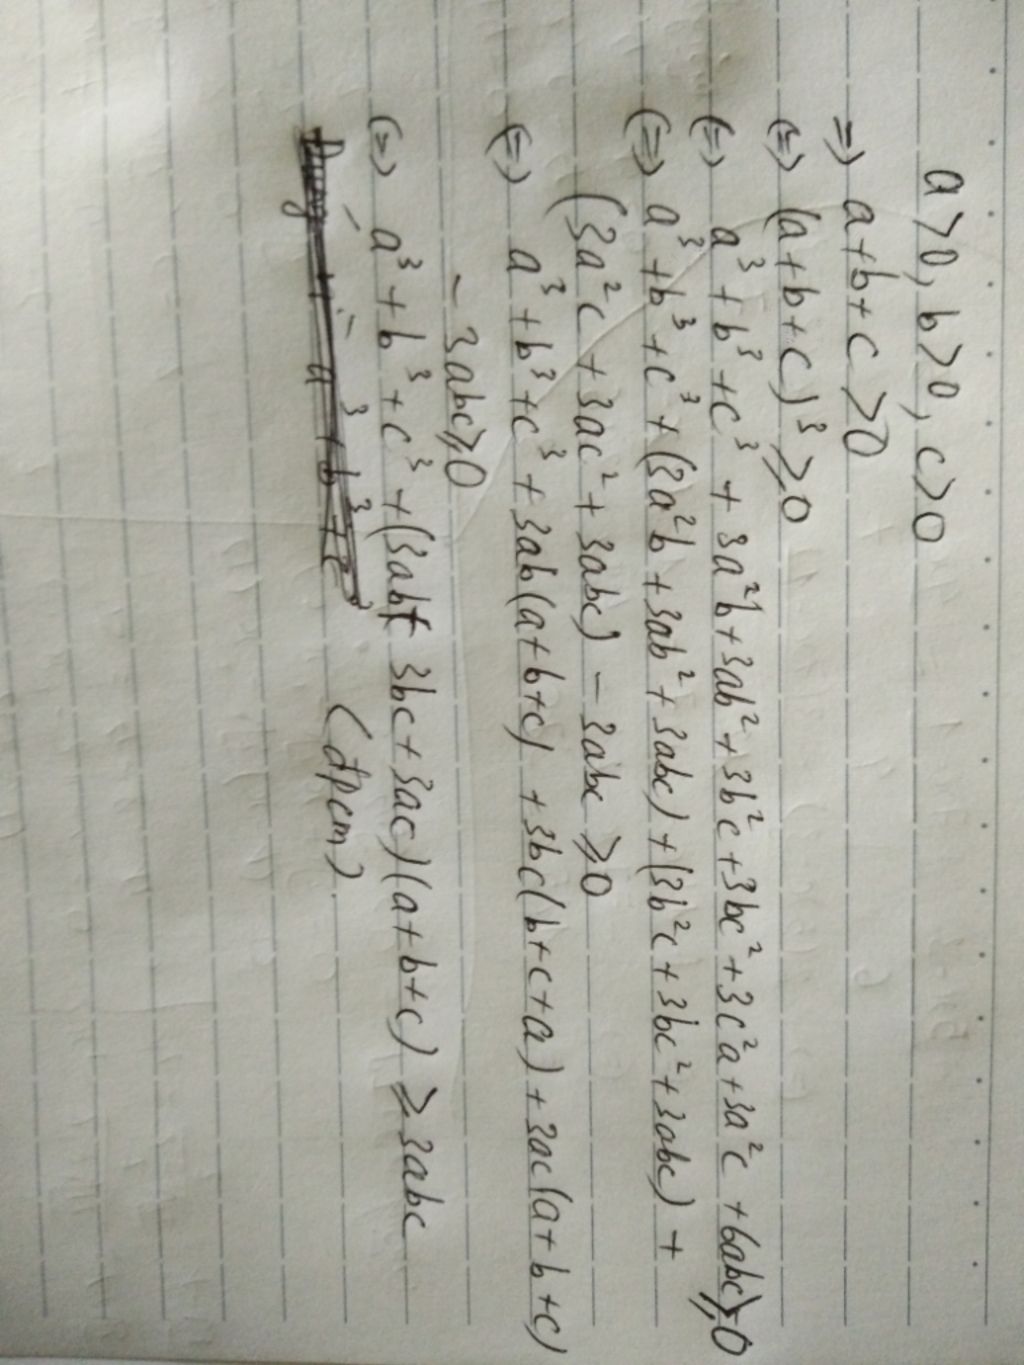 a>0, b>0, c>0
=> a+b+c >0
(=) (a+b+c)³ ⩾0
(=) a³+b³+c³ + 3a²b+3ab²+3b²c+3bc²+3c²a+3a²c+6abc⩾0
(=) a³+b³+c³+(3a²b+3ab²+3abc)+(3b²c+3bc²+3abc)+
(3a²c+3ac²+3abc)-3abc ⩾0
(=) a³+b³+c³+3ab(a+b+c)+3bc(b+c+a)+3ac(a+b+c)
-3abc⩾0
(=) a³+b³+c³+(3ab+3bc+3ac)(a+b+c) ⩾3abc
a³+b³+c³
(đpcm).